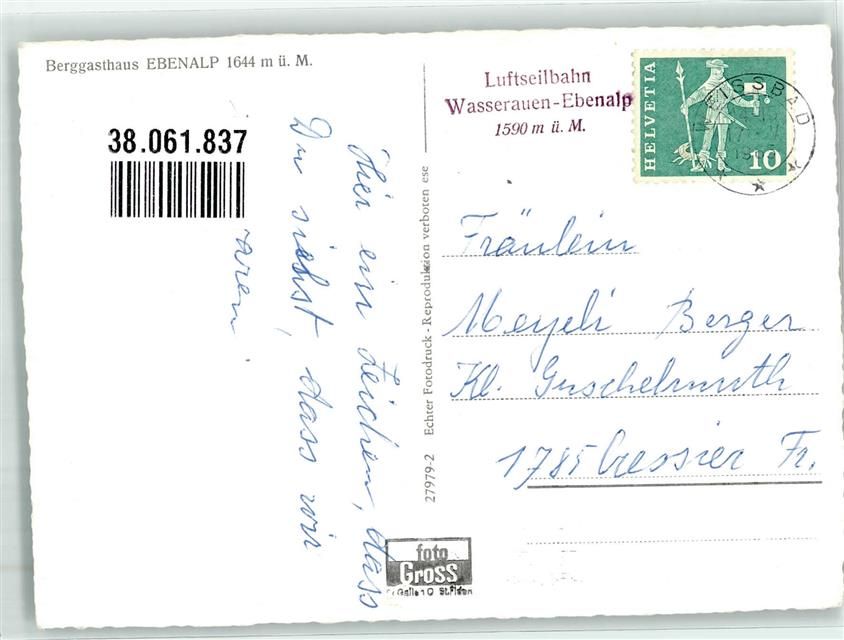 Berggasthaus EBENALP 1644 m ü. M.
38.061.837
Hier ein Zeichen, dass
Du siehst, dass wir
waren
27979-2 Echter Fotodruck - Reproduktion verboten ese
foto
Gross
St. Fiden
Luftseilbahn
Wasserauen-Ebenalp
1590 m ü. M.
HELVETIA
10
Fräulein
Meyeli Berger
Kl. Guschelmuth
1785 Cressier Fr.